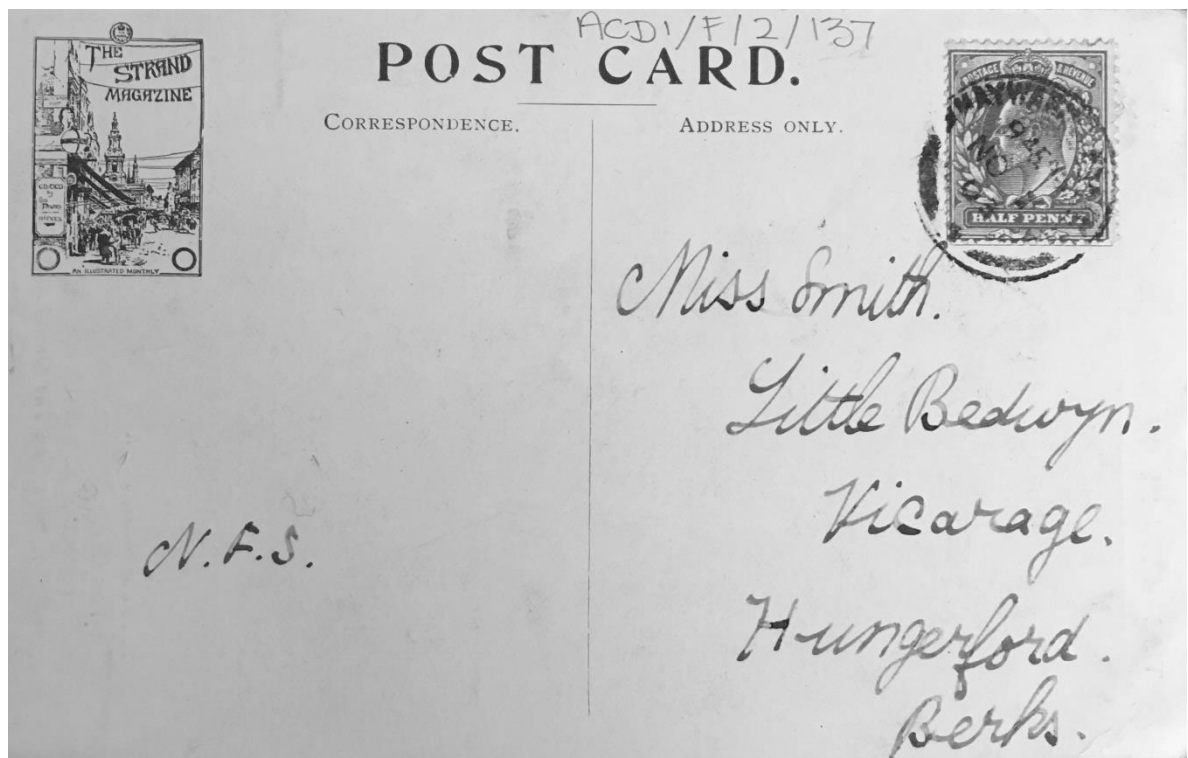 ACD1/F/2/137
THE
STRAND
MAGAZINE
AN ILLUSTRATED MONTHLY
POST CARD.
CORRESPONDENCE.
ADDRESS ONLY.
POSTAGE & REVENUE
HALF PENNY
Miss Smith.
Little Bedwyn.
Vicarage.
Hungerford.
Berks.
N.F.S.